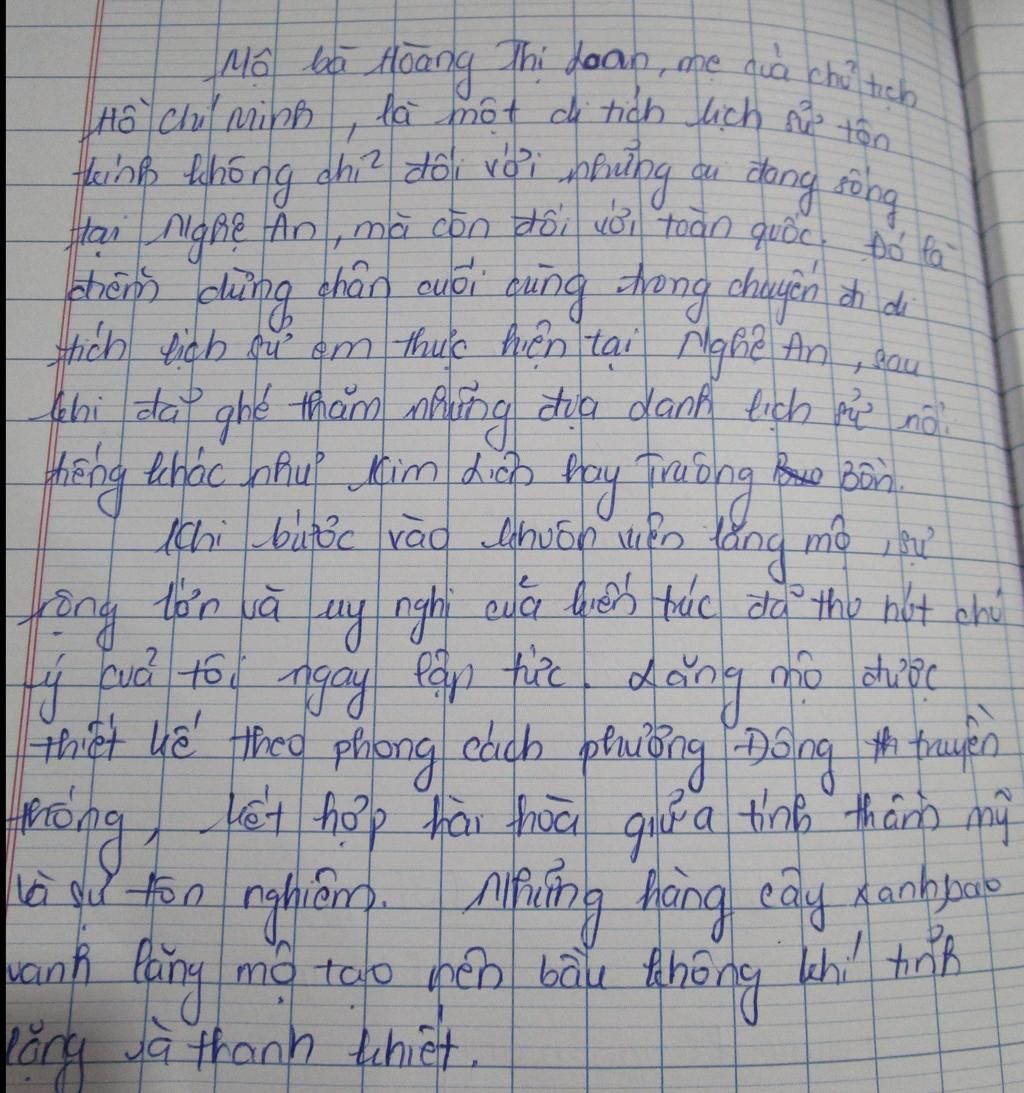 Mộ bà Hoàng Thị Loan, mẹ của chủ tịch
Hồ Chí Minh, là một di tích lịch sử tôn
kính không chỉ đối với những ai đang sống
tại Nghệ An, mà còn đối với toàn quốc. Đó là
điểm dừng chân cuối cùng trong chuyến đi di
tích lịch sử em thực hiện tại Nghệ An, sau
khi đã ghé thăm những địa danh lịch sử nổi
tiếng khác như Kim Liên hay Truông Bồn.
Khi bước vào khuôn viên lăng mộ, sự
rộng lớn và uy nghi của kiến trúc đã thu hút chú
ý của tôi ngay lập tức. Lăng mộ được
thiết kế theo phong cách phương Đông truyền
thống, kết hợp hài hòa giữa tính thẩm mỹ
và sự tôn nghiêm. Những hàng cây xanh bao
quanh lăng mộ tạo nên bầu không khí tĩnh
lặng và thanh khiết.